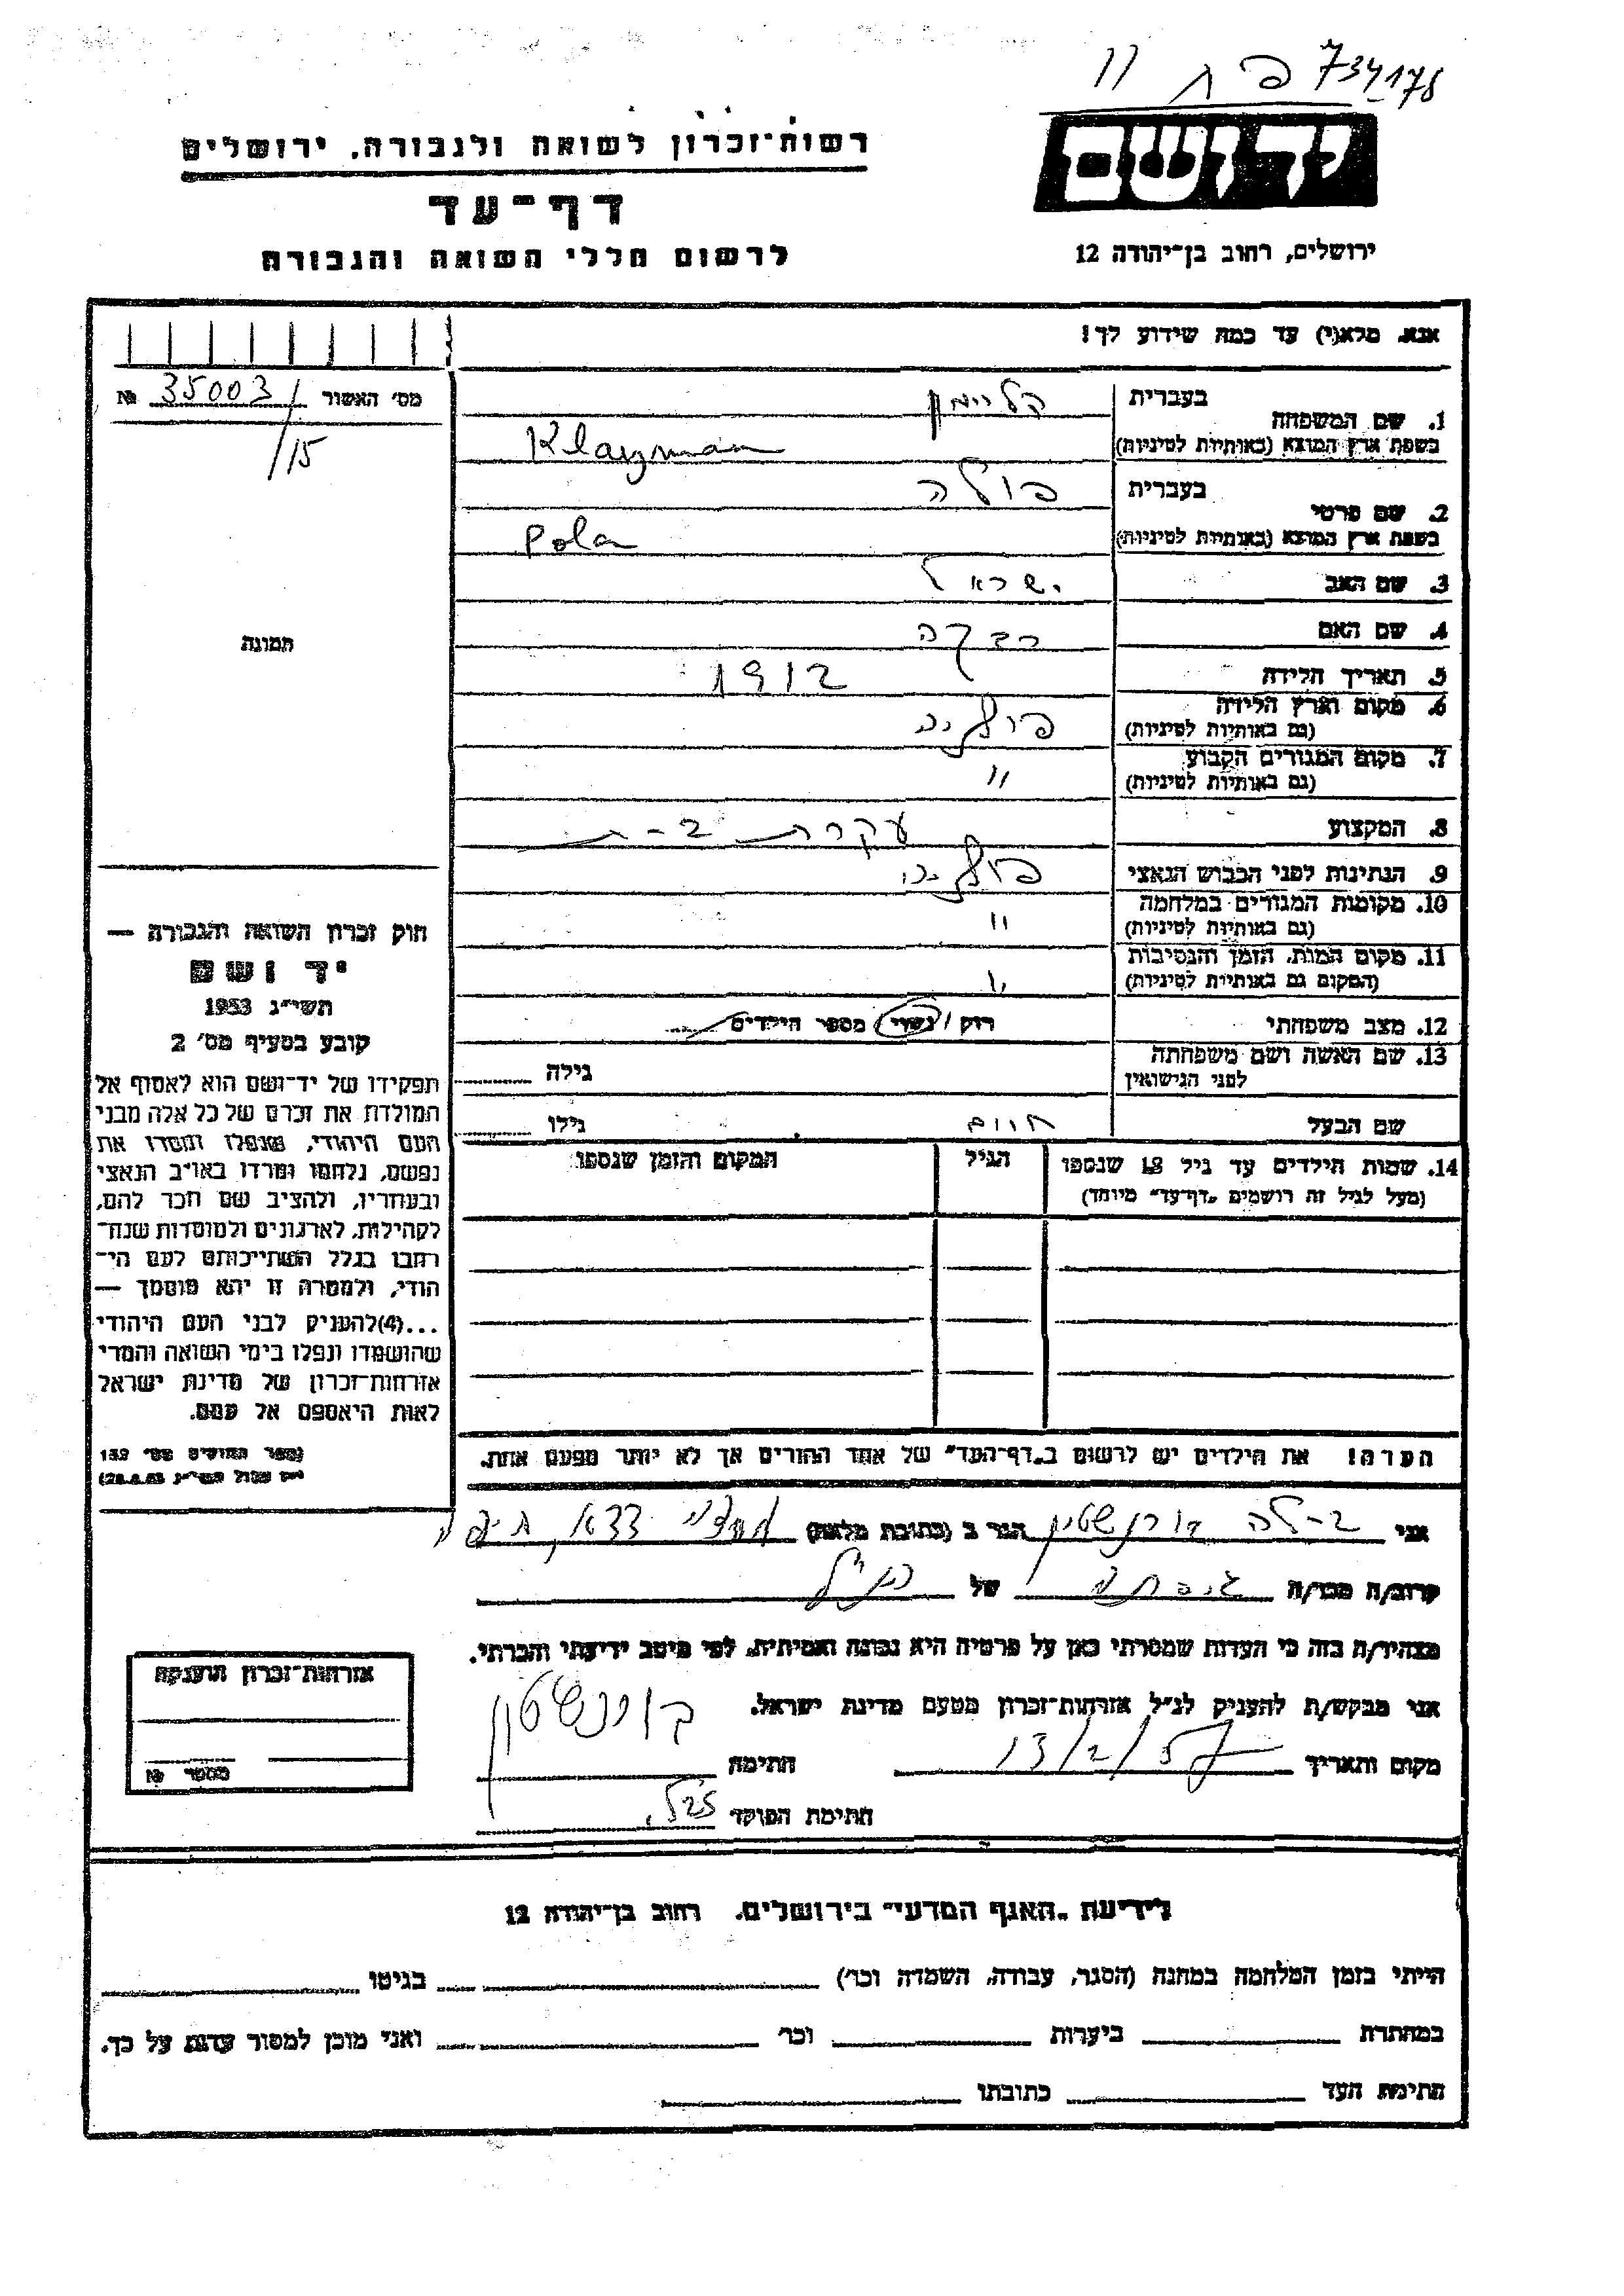 734178 פ ח 11
יד ושם
ירושלים, רחוב בן־יהודה 12
רשות־זכרון לשואה ולגבורה, ירושלים
דף־עד
לרשום חללי השואה והגבורה
אנא, מלא(י) עד כמה שידוע לך!
מס׳ האשור 35003 №
/15
תמונה
1. שם המשפחה
בעברית קליימן
בשפת ארץ המוצא (באותיות לטיניות) Klayzman
2. שם פרטי
בעברית פולה
בשפת ארץ המוצא (באותיות לטיניות) Pola
3. שם האב ישראל
4. שם האם רבקה
5. תאריך הלידה 1912
6. מקום וארץ הלידה פולניה
(גם באותיות לטיניות)
7. מקום המגורים הקבוע "
(גם באותיות לטיניות)
8. המקצוע עקרת ב-ת
9. הנתינות לפני הכבוש הנאצי פולניה
10. מקומות המגורים במלחמה "
(גם באותיות לטיניות)
11. מקום המות, הזמן והנסיבות "
(המקום גם באותיות לטיניות)
12. מצב משפחתי רוק / נשוי מספר הילדים
13. שם האשה ושם משפחתה
לפני הנישואין גילה
שם הבעל חיים גילו
14. שמות הילדים עד גיל 18 שנספו הגיל המקום והזמן שנספו
(מעל לגיל זה רושמים „דף־עד" מיוחד)
הערה! את הילדים יש לרשום ב„דף־העד" של אחד ההורים אך לא יותר מפעם אחת.
חוק זכרון השואה והגבורה —
יד ושם
תשי״ג 1953
קובע בסעיף מס׳ 2
תפקידו של יד־ושם הוא לאסוף אל
המולדת את זכרם של כל אלה מבני
העם היהודי, שנפלו ומסרו את
נפשם, נלחמו ומרדו באויב הנאצי
ובעוזריו, ולהציב שם וזכר להם,
לקהילות, לארגונים ולמוסדות שנח־
רבו בגלל השתייכותם לעם הי־
הודי, ולמטרה זו יהא מוסמך —
...(4)להעניק לבני העם היהודי
שהושמדו ונפלו בימי השואה והמרי
אזרחות־זכרון של מדינת ישראל
לאות היאספם אל עמם.
(ספר החוקים מס׳ 132
אני ב-לה הגר ב (כתובת מלאה)
קרוב/ה מכר/ה של הנ״ל
מצהיר/ה בזה כי העדות שמסרתי כאן על פרטיה היא נכונה ואמיתית, לפי מיטב ידיעתי והכרתי.
אני מבקש/ת להעניק לנ״ל אזרחות־זכרון מטעם מדינת ישראל.
מקום ותאריך 13/2/57 חתימה
חתימת הפוקד
אזרחות־זכרון הוענקה
מספר №
לידיעת „האגף המדעי" בירושלים, רחוב בן־יהודה 12
הייתי בזמן המלחמה במחנה (הסגר, עבודה, השמדה וכו׳) בגיטו
במחתרת ביערות וכו׳ ואני מוכן למסור עדות על כך.
חתימת העד כתובתו